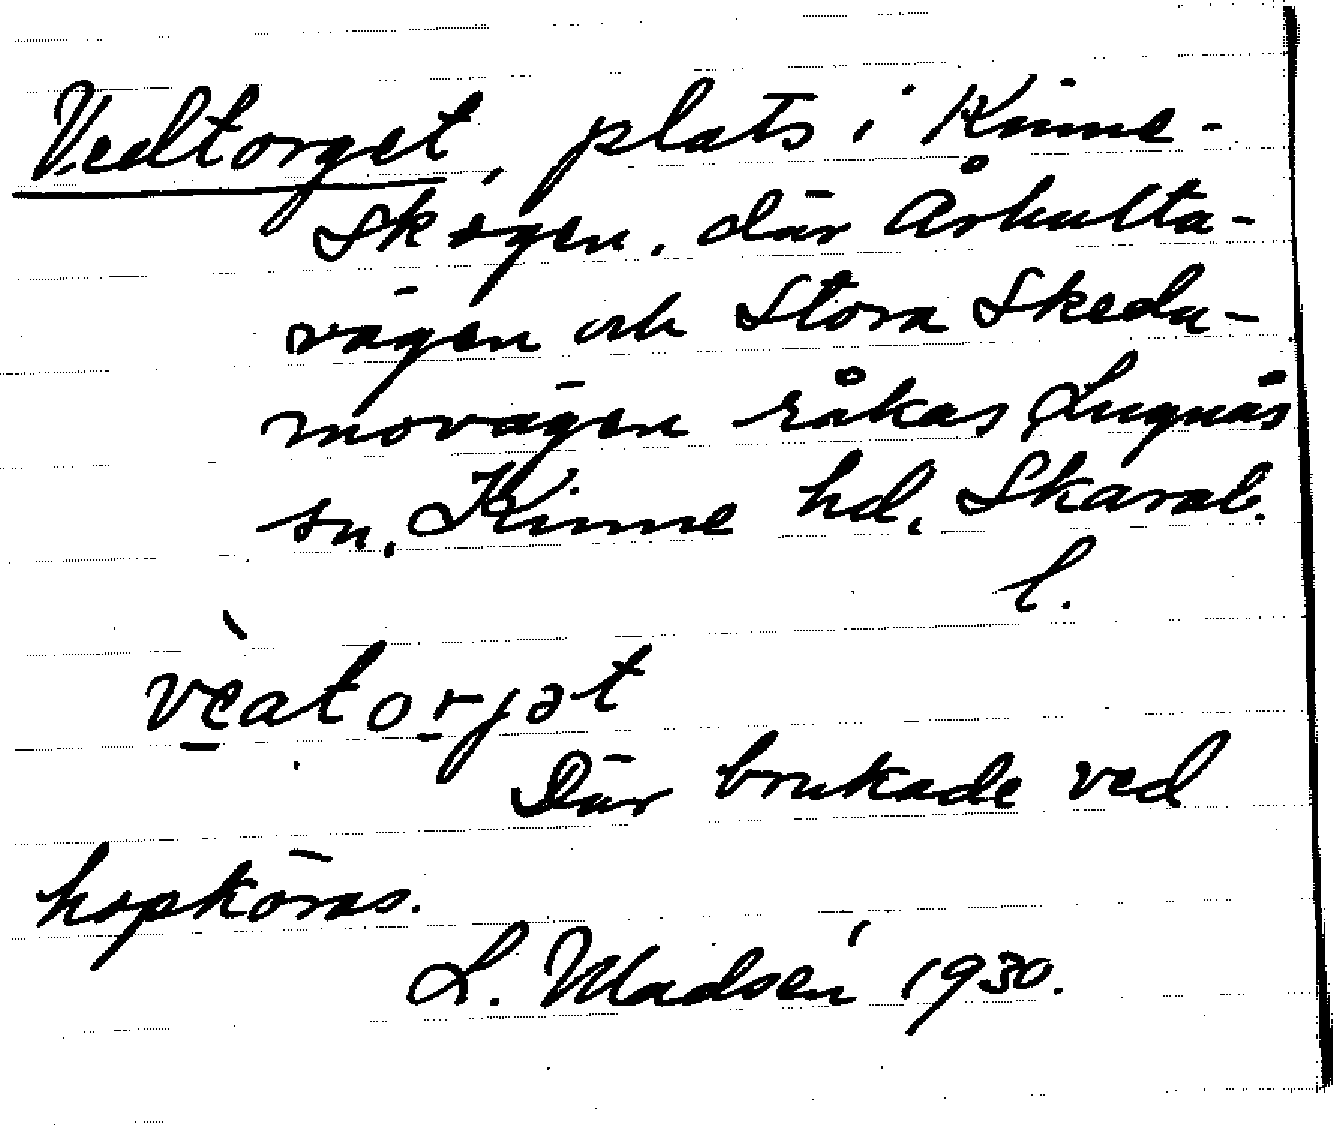 Vedtorget, plats i Kinne-
skogen, där Århulta-
vägen och Stora Skeda-
movägen råkas, Lugnås
sn, Kinne hd, Skarab.
l.
vèatorjət
Där brukade ved
hopköras.
L. Madsén 1930.